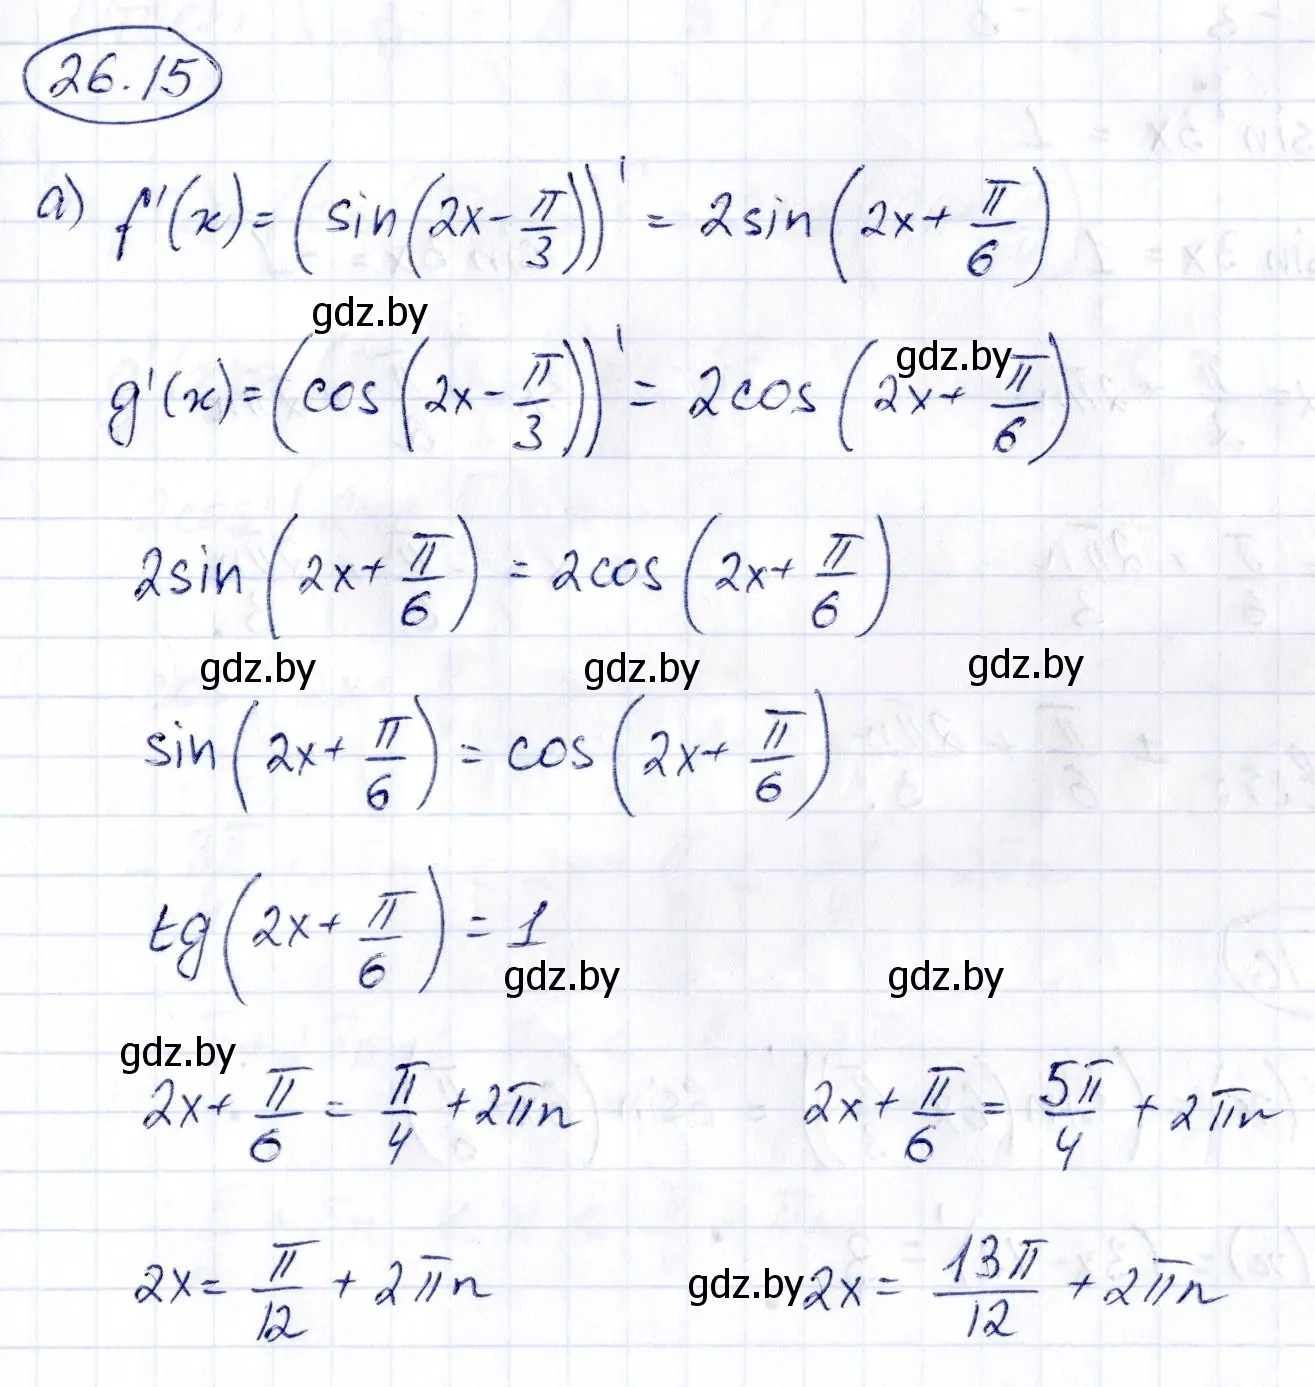 26.15
а) f'(x) = (sin(2x - π/3))' = 2sin(2x + π/6)
gdz.by
gdz.by
g'(x) = (cos(2x - π/3))' = 2cos(2x + π/6)
2sin(2x + π/6) = 2cos(2x + π/6)
gdz.by gdz.by gdz.by
sin(2x + π/6) = cos(2x + π/6)
tg(2x + π/6) = 1
gdz.by gdz.by
gdz.by
2x + π/6 = π/4 + 2πn 2x + π/6 = 5π/4 + 2πn
2x = π/12 + 2πn gdz.by 2x = 13π/12 + 2πn